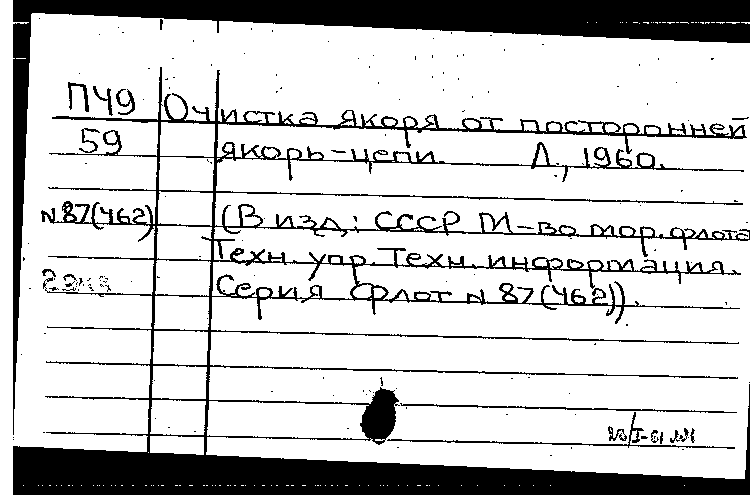 ПЧ9 Очистка якоря от посторонней
59 якорь-цепи. Л., 1960.
N87(462) (В изд.: СССР М-во мор. флота
Техн. упр. Техн. информация.
2экз Серия Флот N 87(462)).